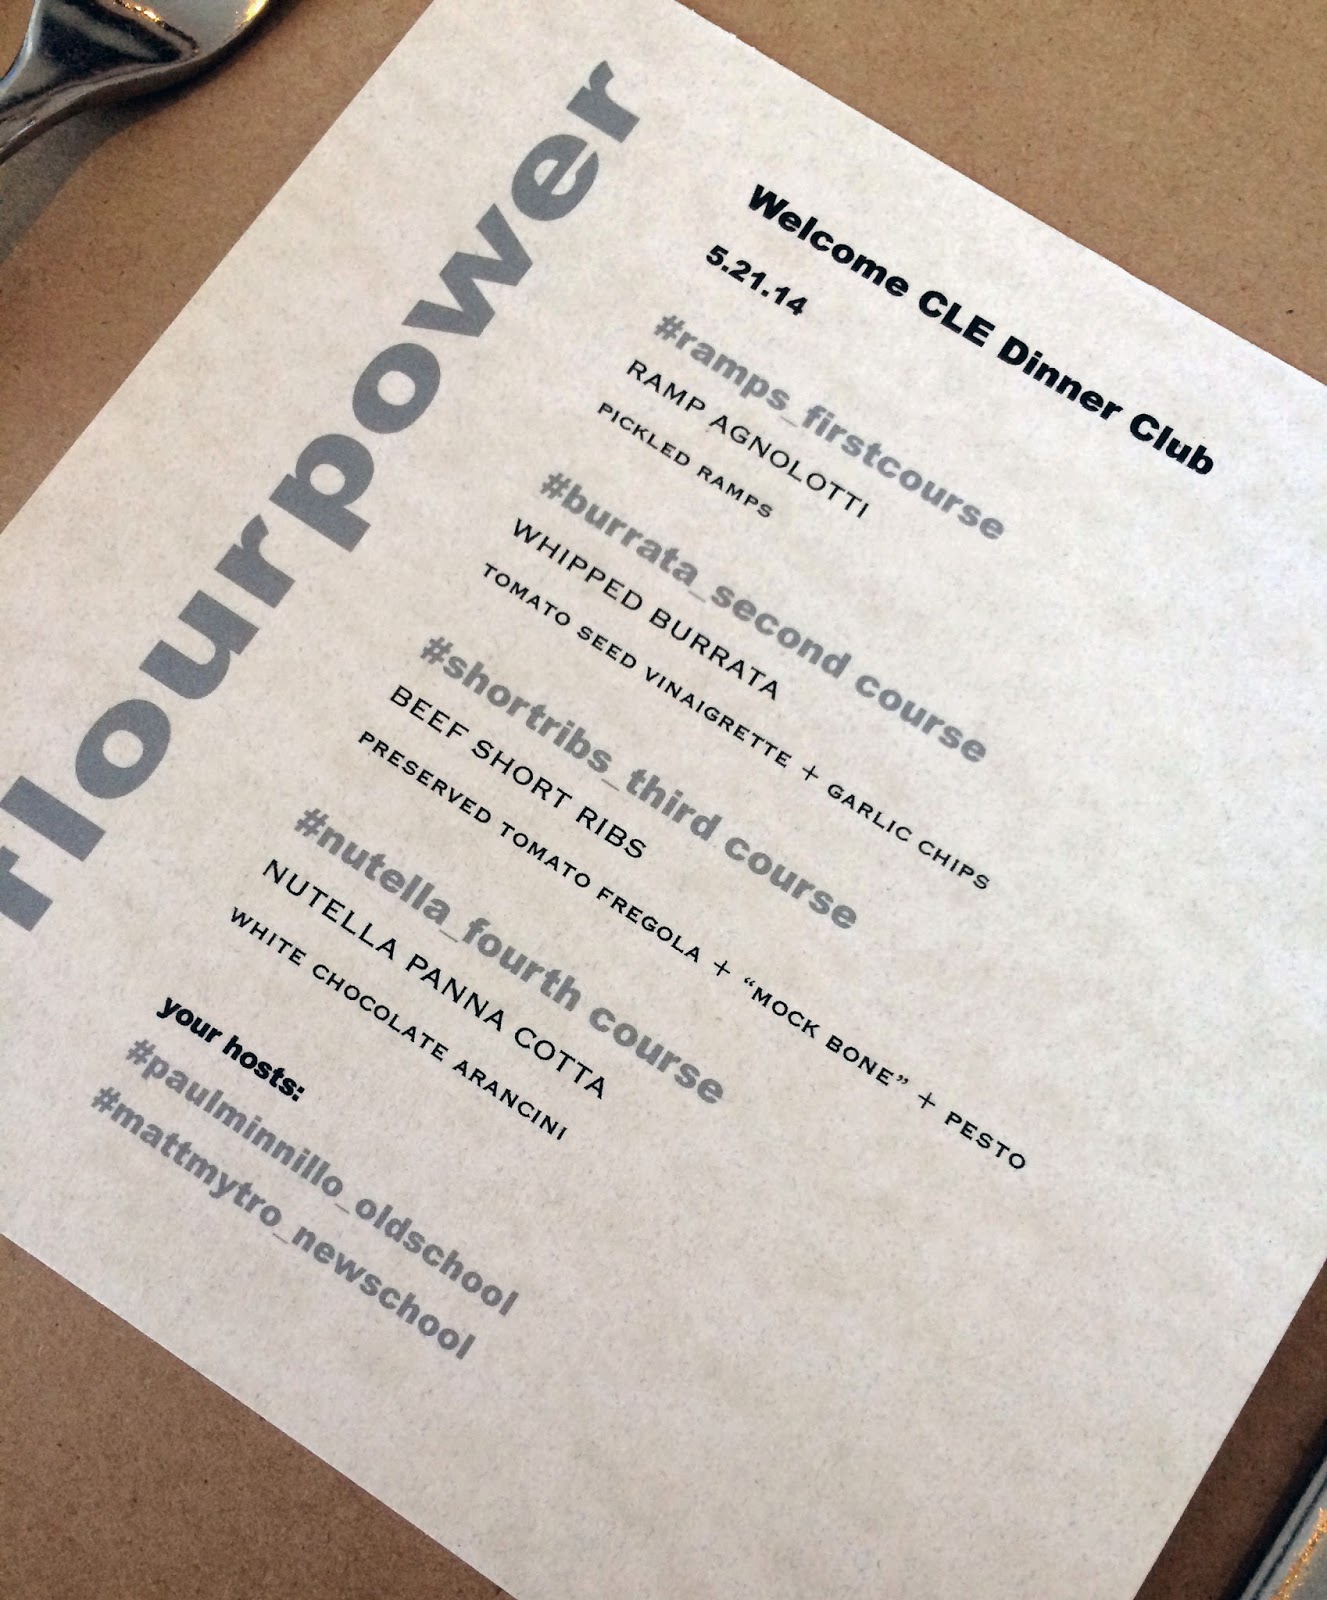 flourpower
Welcome CLE Dinner Club
5.21.14
#ramps_firstcourse
RAMP AGNOLOTTI
PICKLED RAMPS
#burrata_second course
WHIPPED BURRATA
TOMATO SEED VINAIGRETTE + GARLIC CHIPS
#shortribs_third course
BEEF SHORT RIBS
PRESERVED TOMATO FREGOLA + “MOCK BONE” + PESTO
#nutella_fourth course
NUTELLA PANNA COTTA
WHITE CHOCOLATE ARANCINI
your hosts:
#paulminnillo_oldschool
#mattmytro_newschool